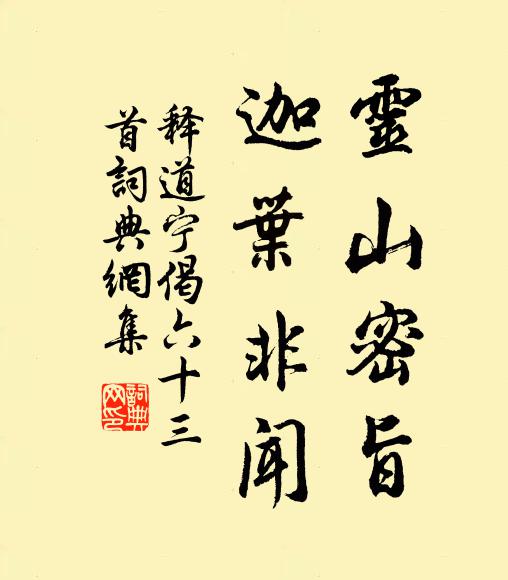 靈山密旨
迦葉非聞
释道宁偈六十三
首詞典網集
詞典
网印